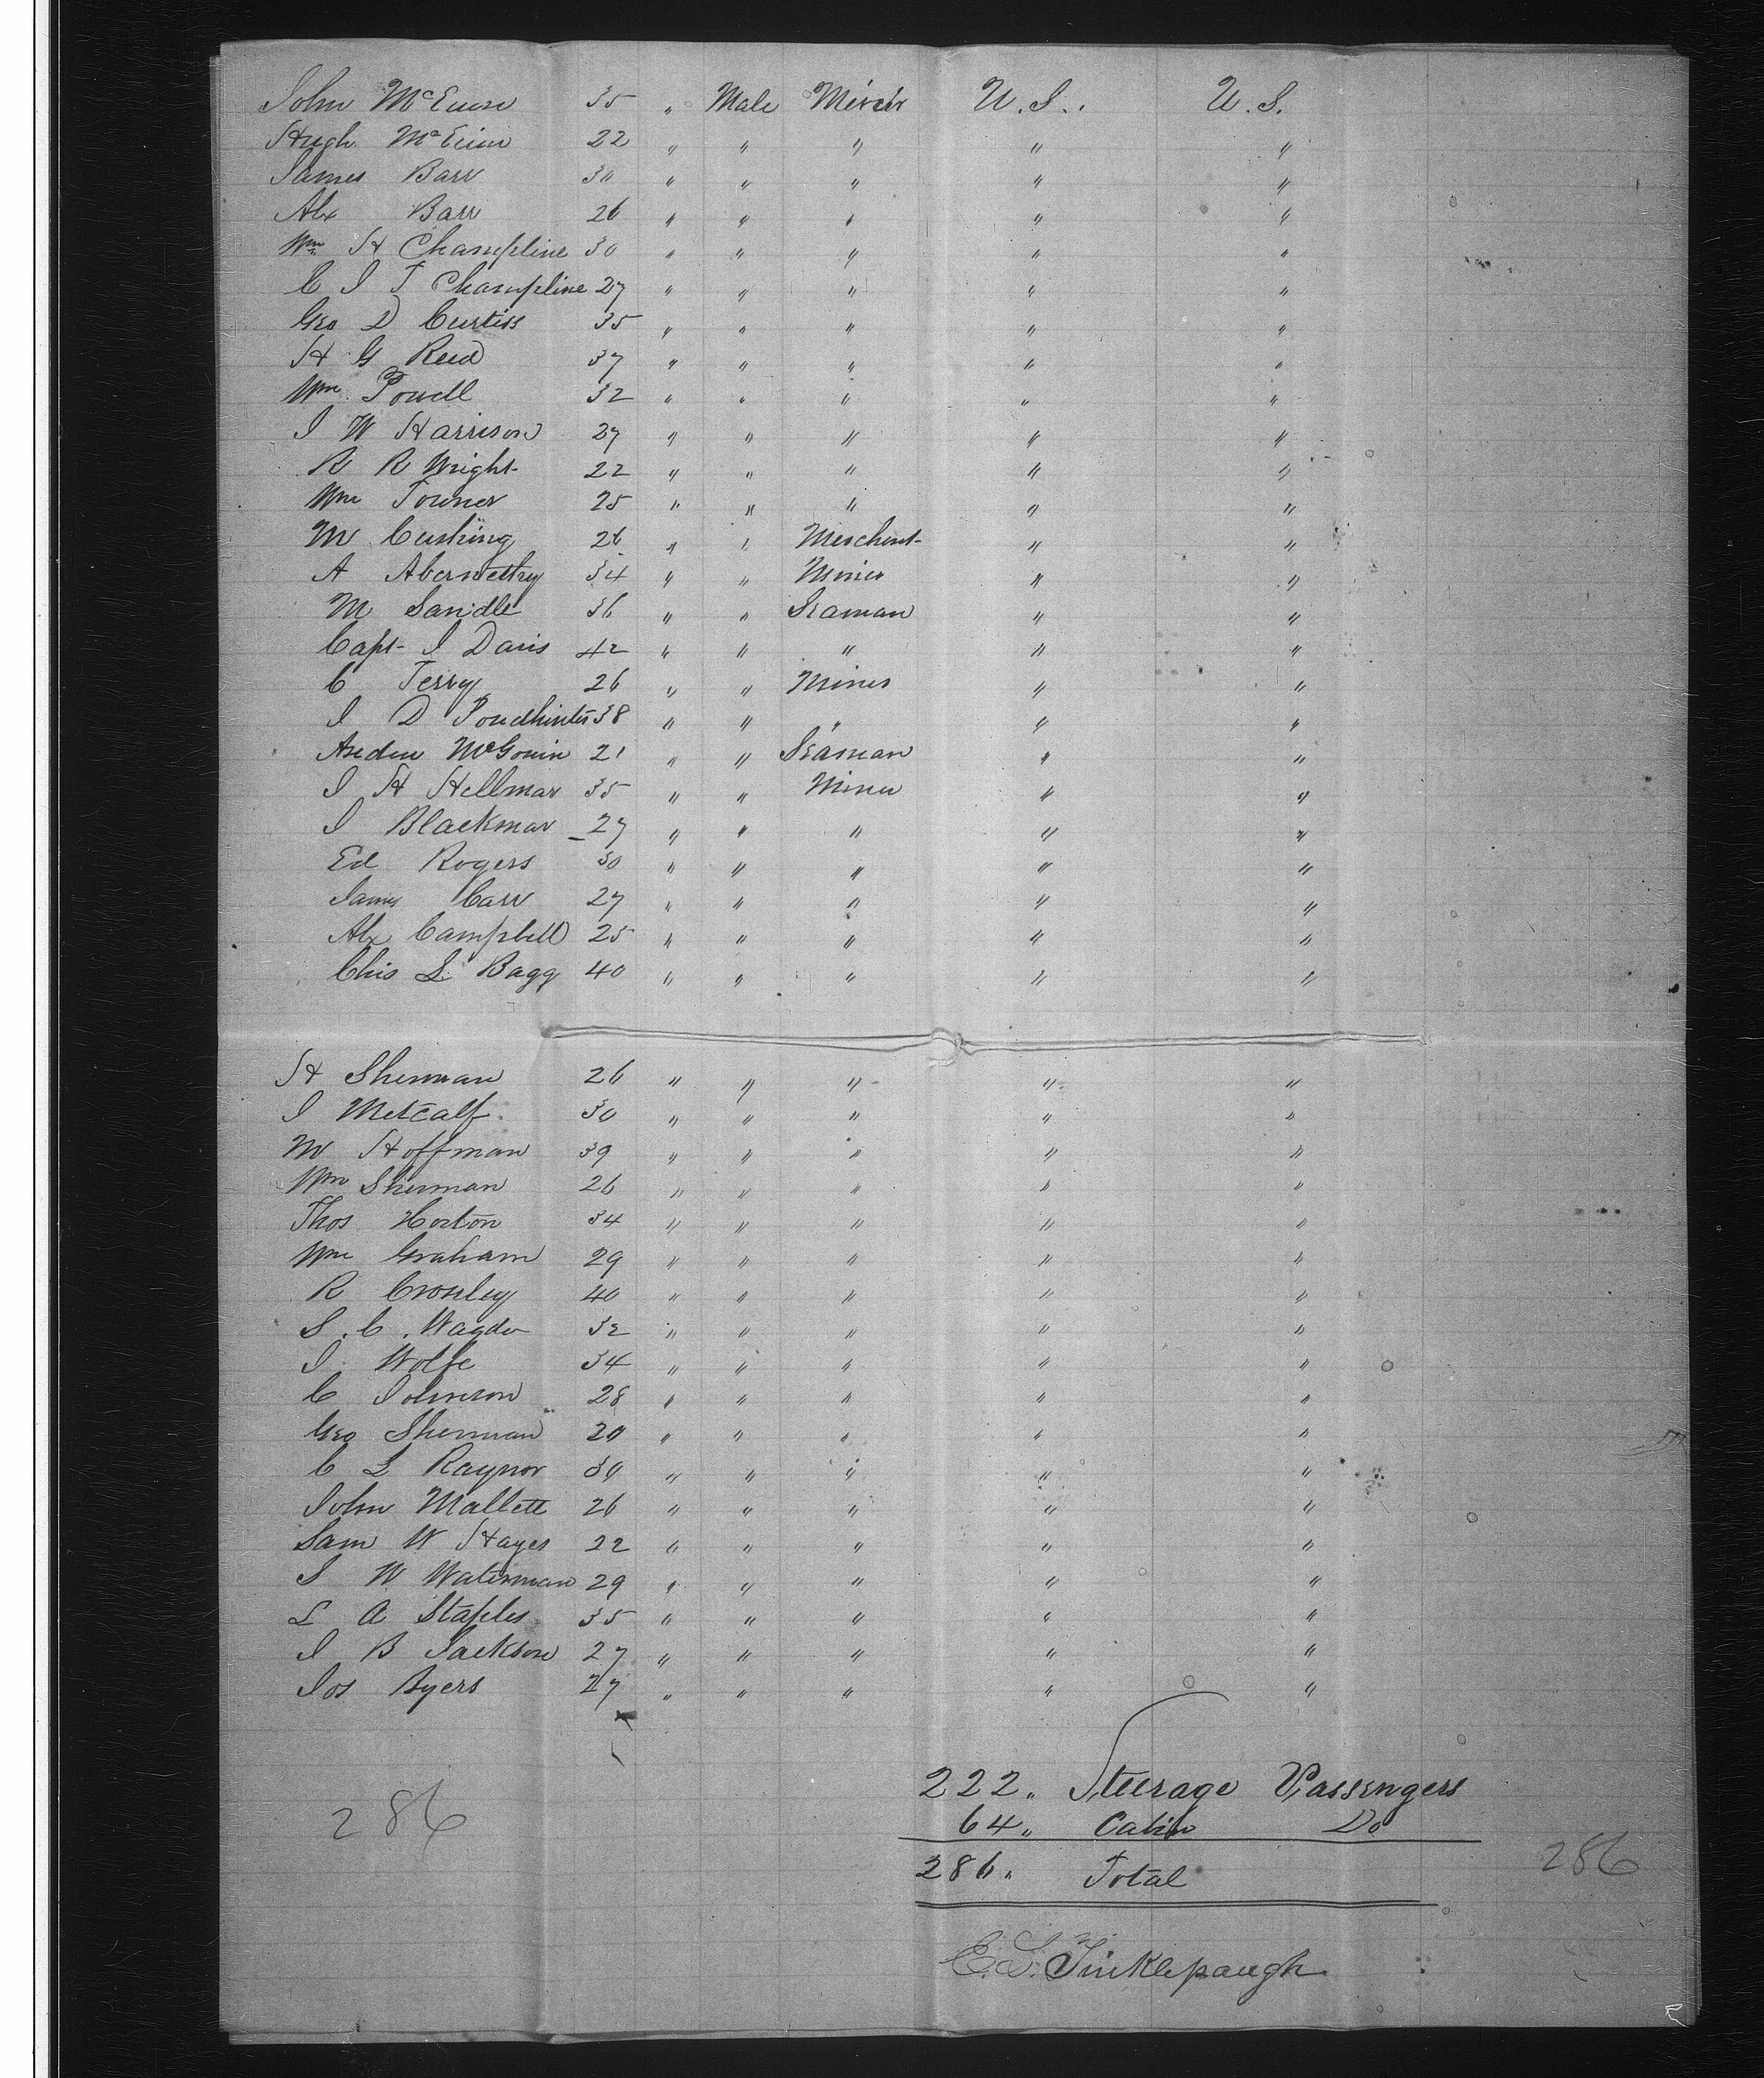 John McEuen 35 " Male Miner U.S. U.S.
Hugh McEuen 22 " " " " "
James Barr 30 " " " " "
Alx Barr 26 " " " " "
Wm H Champline 30 " " " " "
C I T Champline 27 " " " " "
Geo D Curtiss 35 " " " " "
H G Reed 37 " " " " "
Wm Powell 32 " " " " "
I W Harrison 27 " " " " "
R R Wright 22 " " " " "
Wm Towner 25 " " " " "
M Cushing 26 " " Merchent " "
A Abernethy 34 " " Miner " "
M Sandle 36 " " Seaman " "
Capt I Davis 42 " " " " "
C Terry 26 " " Miner " "
I D 38 " " " " "
McGouin 21 " " Seaman " "
I H Hellmar 35 " " Miner " "
I Blackmar 27 " " " " "
Ed Rogers 30 " " " " "
James Carr 27 " " " " "
Alx Campbell 25 " " " " "
Chis L Bagg 40 " " " " "
H Sherman 26 " " " " "
I Metcalf 30 " " " " "
M Hoffman 39 " " " " "
Wm Sherman 26 " " " " "
Thos Horton 34 " " " " "
Wm Graham 29 " " " " "
R Crosley 40 " " " " "
S. C. 32 " " " " "
I Wolfe 34 " " " " "
C Johnson 28 " " " " "
Geo Sherman 20 " " " " "
C L Raynor 30 " " " " "
John Mallett 26 " " " " "
Sam W Hayes 22 " " " " "
S W Waterman 29 " " " " "
L A Staples 35 " " " " "
I B Jackson 27 " " " " "
Jos Byers 27 " " " " "
222 " Steerage Passengers
64 " Cabin Do
286 " Total
286
286
E. L. Tinklepaugh